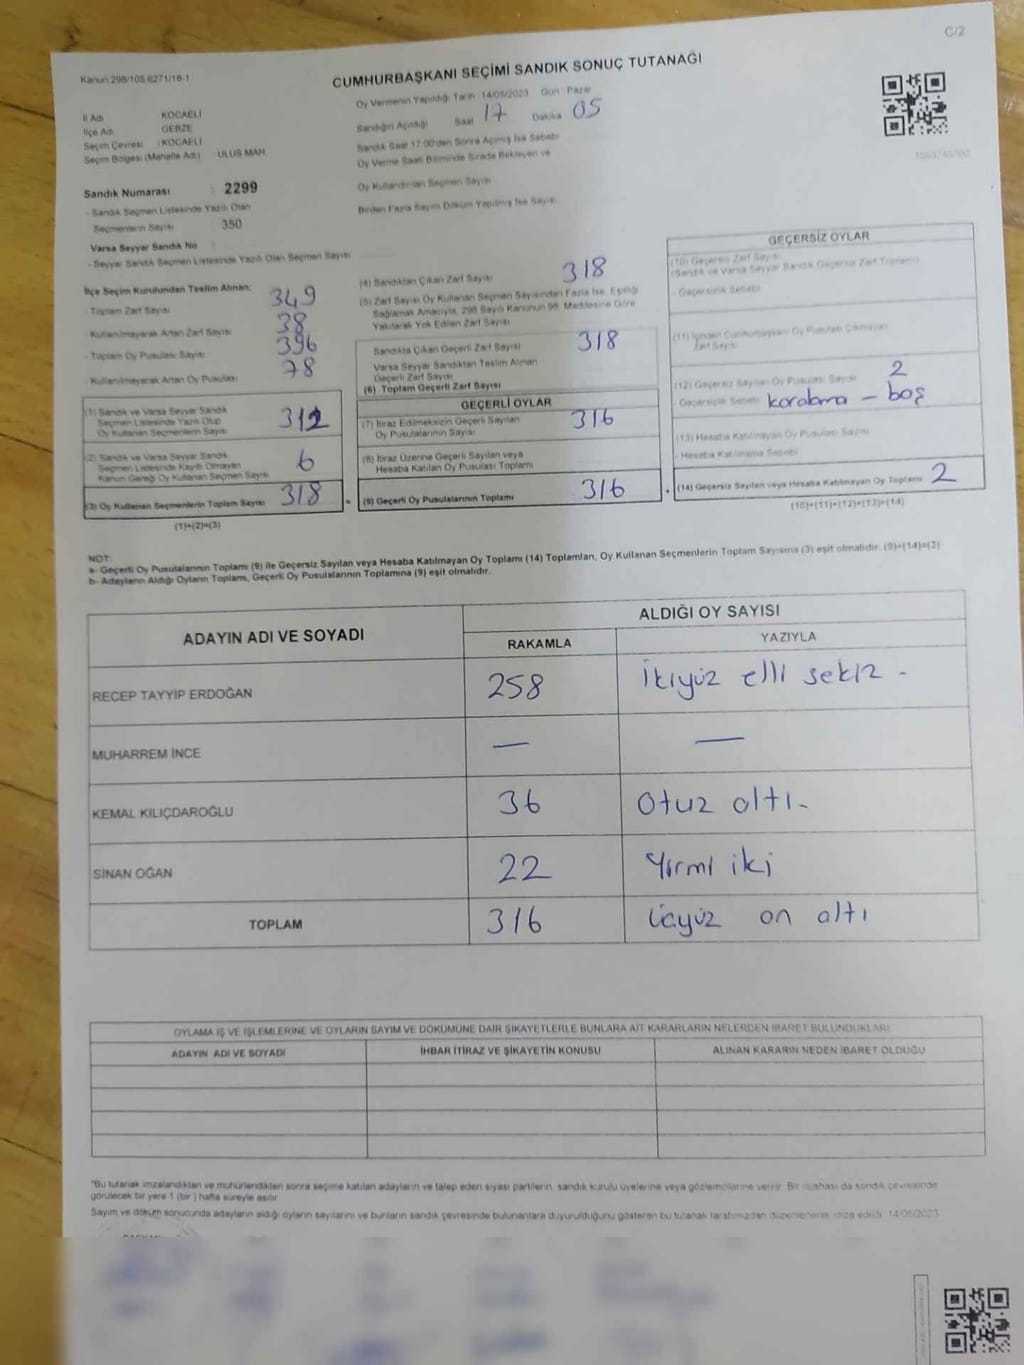 C/2
Kanun:298/105,6271/18-1
CUMHURBAŞKANI SEÇİMİ SANDIK SONUÇ TUTANAĞI
İl Adı KOCAELİ
İlçe Adı GEBZE
Seçim Çevresi : KOCAELİ
Seçim Bölgesi (Mahalle Adı) ULUS MAH.
Oy Vermenin Yapıldığı Tarih 14/05/2023 Gün Pazar
Sandığın Açıldığı Saat 17 Dakika 05
Sandık Saat 17:00'den Sonra Açılmış İse Sebebi
Oy Verme Saati Bitiminde Sırada Bekleyen ve
Oy Kullandırılan Seçmen Sayısı
Birden Fazla Sayım Döküm Yapılmış İse Sayısı
Sandık Numarası : 2299
- Sandık Seçmen Listesinde Yazılı Olan
Seçmenlerin Sayısı : 350
Varsa Seyyar Sandık No :
- Seyyar Sandık Seçmen Listesinde Yazılı Olan Seçmen Sayısı
İlçe Seçim Kurulundan Teslim Alınan;
- Toplam Zarf Sayısı 349
- Kullanılmayarak Artan Zarf Sayısı 38
- Toplam Oy Pusulası Sayısı 396
- Kullanılmayarak Artan Oy Pusulası 78
(1) Sandık ve Varsa Seyyar Sandık
Seçmen Listesinde Yazılı Olup
Oy Kullanan Seçmenlerin Sayısı 312
(2) Sandık ve Varsa Seyyar Sandık
Seçmen Listesinde Kayıtlı Olmayan
Kanun Gereği Oy Kullanan Seçmen Sayısı 6
(3) Oy Kullanan Seçmenlerin Toplam Sayısı 318 =
(1)+(2)=(3)
(4) Sandıktan Çıkan Zarf Sayısı 318
(5) Zarf Sayısı Oy Kullanan Seçmen Sayısından Fazla İse, Eşitliği
Sağlamak Amacıyla, 298 Sayılı Kanunun 98. Maddesine Göre
Yakılarak Yok Edilen Zarf Sayısı
Sandıkta Çıkan Geçerli Zarf Sayısı 318
Varsa Seyyar Sandıktan Teslim Alınan
Geçerli Zarf Sayısı
(6) Toplam Geçerli Zarf Sayısı
GEÇERLİ OYLAR
(7) İtiraz Edilmeksizin Geçerli Sayılan
Oy Pusulalarının Sayısı 316
(8) İtiraz Üzerine Geçerli Sayılan veya
Hesaba Katılan Oy Pusulası Toplamı
(9) Geçerli Oy Pusulalarının Toplamı 316
GEÇERSİZ OYLAR
(10) Geçersiz Zarf Sayısı
(Sandık ve Varsa Seyyar Sandık Geçersiz Zarf Toplamı)
- Geçersizlik Sebebi
(11) İçinden Cumhurbaşkanı Oy Pusulası Çıkmayan
Zarf Sayısı
(12) Geçersiz Sayılan Oy Pusulası Sayısı 2
- Geçersizlik Sebebi karalama - boş
(13) Hesaba Katılmayan Oy Pusulası Sayısı
- Hesaba Katılmama Sebebi
(14) Geçersiz Sayılan veya Hesaba Katılmayan Oy Toplamı 2
(10)+(11)+(12)+(13)=(14)
NOT:
a- Geçerli Oy Pusulalarının Toplamı (9) ile Geçersiz Sayılan veya Hesaba Katılmayan Oy Toplamı (14) Toplamları, Oy Kullanan Seçmenlerin Toplam Sayısına (3) eşit olmalıdır. (9)+(14)=(3)
b- Adayların Aldığı Oyların Toplamı, Geçerli Oy Pusulalarının Toplamına (9) eşit olmalıdır.
ADAYIN ADI VE SOYADI ALDIĞI OY SAYISI
RAKAMLA YAZIYLA
RECEP TAYYİP ERDOĞAN 258 İkiyüz elli sekiz -
MUHARREM İNCE — —
KEMAL KILIÇDAROĞLU 36 Otuz altı-
SİNAN OĞAN 22 Yirmi iki
TOPLAM 316 Üçyüz on altı
OYLAMA İŞ VE İŞLEMLERİNE VE OYLARIN SAYIM VE DÖKÜMÜNE DAİR ŞİKAYETLERLE BUNLARA AİT KARARLARIN NELERDEN İBARET BULUNDUKLARI
ADAYIN ADI VE SOYADI İHBAR İTİRAZ VE ŞİKAYETİN KONUSU ALINAN KARARIN NEDEN İBARET OLDUĞU
"Bu tutanak imzalandıktan ve mühürlendikten sonra seçime katılan adayların ve talep eden siyasi partilerin, sandık kurulu üyelerine veya gözlemcilerine verilir. Bir nüshası da sandık çevresinde
görülecek bir yere 1 (bir ) hafta süreyle asılır.
Sayım ve döküm sonucunda adayların aldığı oyların sayılarını ve bunların sandık çevresinde bulunanlara duyurulduğunu gösteren bu tutanak tarafımızdan düzenlenerek imza edildi. 14/05/2023